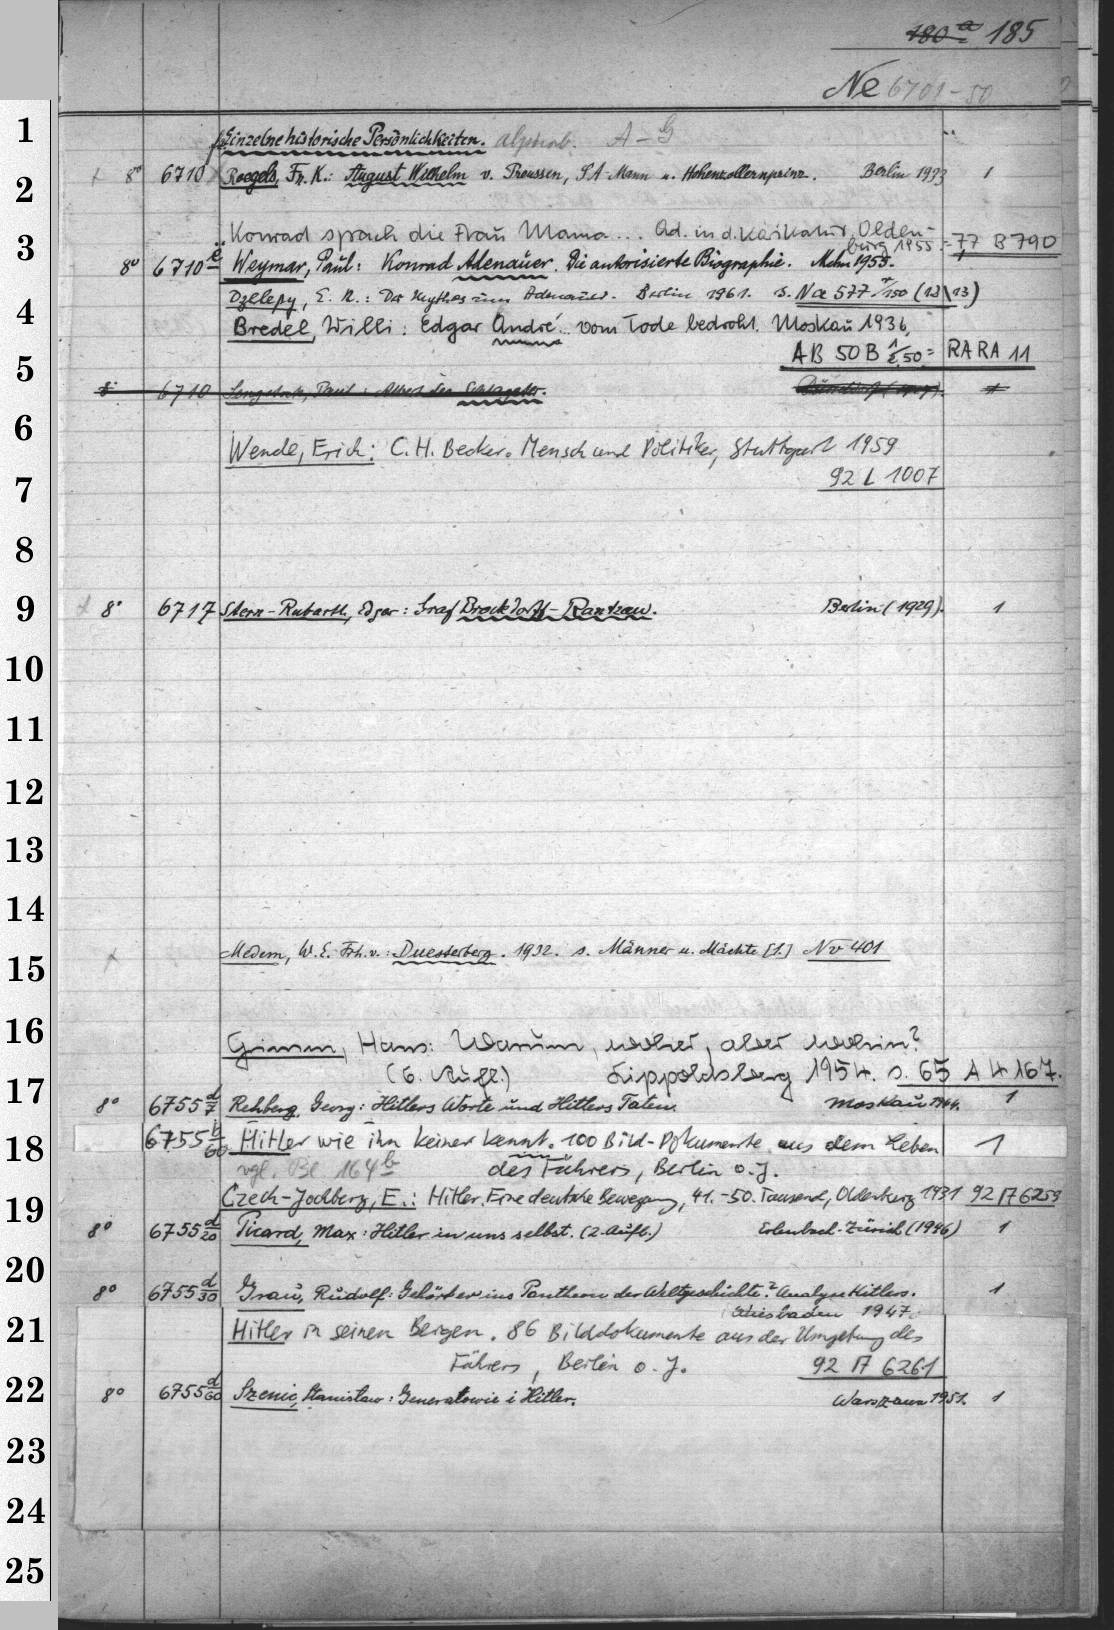 180a 185
Ne 6701-50
1
Einzelne historische Persönlichkeiten. alphab. A-G
2
8° 6710 Roegels, Fr. K.: August Wilhelm v. Preussen, SA-Mann u. Hohenzollernprinz. Berlin 1933 1
Konrad sprach die Frau Mama... Ad. in d. Karikatur. Olden-
burg 1955 = 77 B 790
3
8° 6710 e Weymar, Paul: Konrad Adenauer. Die autorisierte Biographie. Mchn 1955.
Dzelepy, E. N.: Der Mythos um Adenauer. Berlin 1961. s. Na 577 /150 (12\13)
4
Bredel, Willi: Edgar André.. vom Tode bedroht. Moskau 1936,
AB 50 B 1/2,50 = RARA 11
5
8° 6710 Paul: Albert Leo Schlageter. 1
6
Wende, Erich: C. H. Becker. Mensch und Politiker, Stuttgart 1959
7
92 L 1007
8
9
8° 6717 Stern-Rubarth, Edgar: Graf Brockdorff-Rantzau. Berlin (1929). 1
10
11
12
13
14
Medem, W. E. Frh. v.: Duesterberg. 1932. s. Männer u. Mächte [1.] Nv 401
15
16
Grimm, Hans: Warum, woher, aber wohin?
(6. Aufl.) Lippoldsberg 1954. s. 65 A 4167.
17
8° 6755 d/7 Rehberg, Georg: Hitlers Worte und Hitlers Taten. Moskau 1944. 1
18
6755 b/60 Hitler wie ihn keiner kennt. 100 Bild-Dokumente aus dem Leben 1
vgl. Bl. 164 b des Führers, Berlin o. J.
19
Czech-Jochberg, E.: Hitler. Eine deutsche Bewegung, 41.-50. Tausend, Oldenburg 1931 92 A 6253
8° 6755 d/20 Picard, Max: Hitler in uns selbst. (2. Aufl.) Erlenbach-Zürich (1946) 1
20
8° 6755 d/30 Grau, Rudolf: Gehört er ins Pantheon der Weltgeschichte? Analyse Hitlers. 1
Wiesbaden 1947.
21
Hitler in seinen Bergen. 86 Bilddokumente aus der Umgebung des
Führers, Berlin o. J. 92 A 6261
22
8° 6755 d/60 Szenic, Stanisław: Generałowie i Hitler. Warszawa 1951. 1
23
24
25